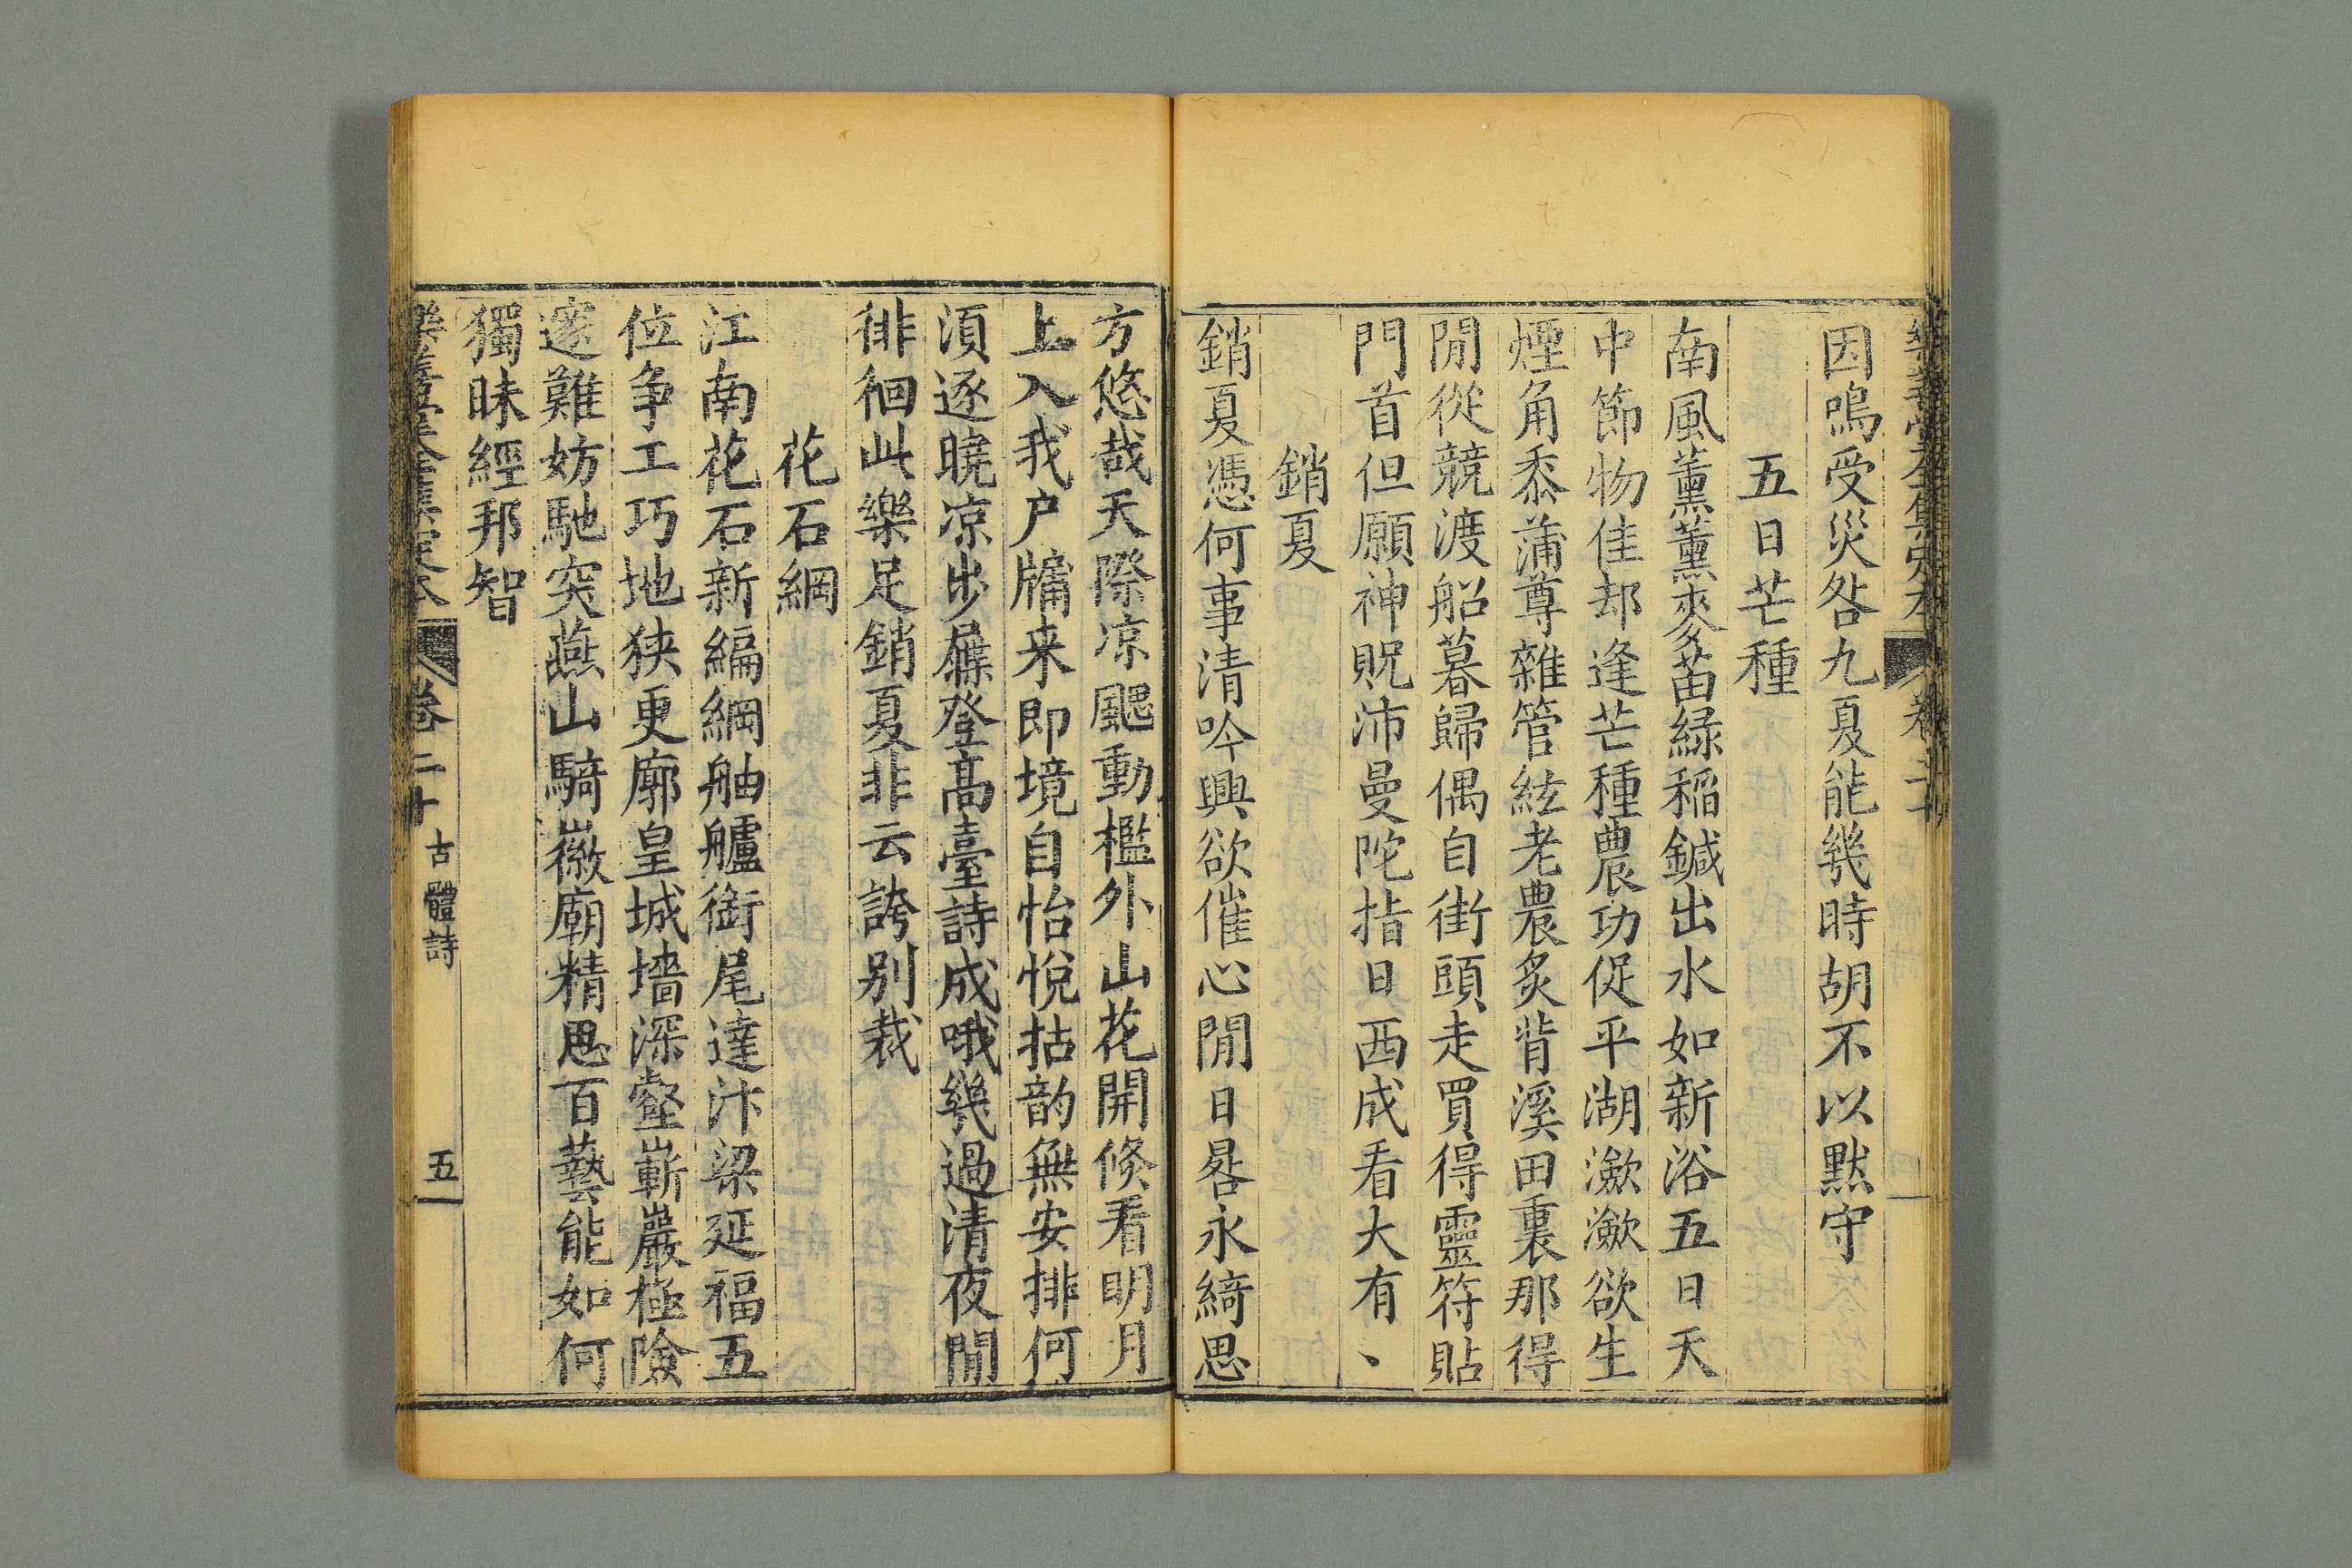 樂善堂全集定本 卷二十
因嗚受災咎九夏能幾時胡不以黙守
五日芒種
南風薰薰麥苗綠稻鍼出水如新浴五日天
中節物佳却逢芒種農功促平湖潋潋欲生
煙角黍蒲尊雜管絃老農炙背溪田裏那得
閒從競渡船暮歸偶自街頭走買得靈符貼
門首但願神貺沛曼陀指日西成看大有、
銷夏
銷夏憑何事清吟興欲催心閒日晷永綺思
方悠哉天際凉颸動檻外山花開倐看明月
上入我户牖来即境自怡悦拈韵無安排何
湏逐曉凉步屧登高臺詩成哦幾過清夜閒
徘徊此樂足銷夏非云誇别裁
花石綱
江南花石新編綱舳艫銜尾達汴梁延福五
位争工巧地狭更廓皇城墻深壑嶄巖極險
邃難妨馳突燕山騎徽廟精思百藝能如何
獨昧經邦智
樂善堂全集定本 卷二十 古體詩 五